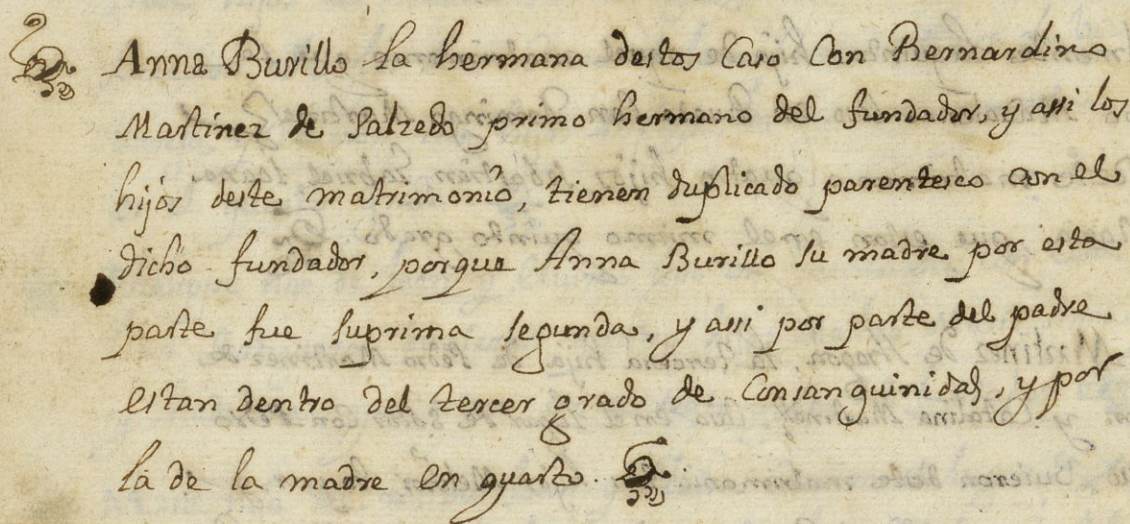 Anna Burillo la hermana destos Caso Con Bernardino
Martinez de Salzedo primo hermano del fundador, y assi los
hijos deste matrimonio, tienen duplicado parentesco con el
dicho fundador, porque Anna Burillo su madre por esta
parte fue suprima segunda, y assi por parte del padre
estan dentro del tercer grado de Consanguinidad, y por
la de la madre en quarto.